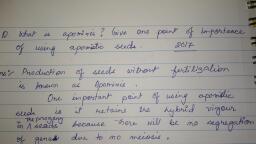 1) What is apomixis? Give one point of importance
of using apomictic seeds. 2017
Ans:- Production of seeds without fertilization
is known as Apomixis.
One important point of using apomictic
seeds is it retains the hybrid vigour
in the progeny / seeds because there will be no segregation
of genes due to no meiosis.